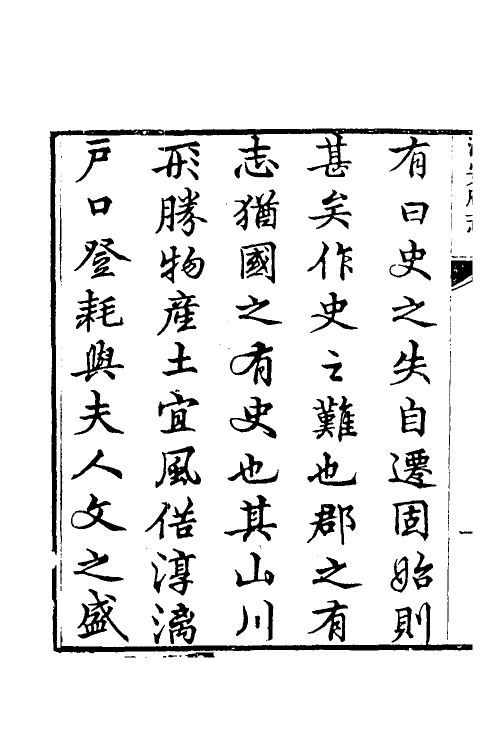 有曰史之失自遷固始則
甚矣作史之難也郡之有
志猶國之有史也其山川
形勝物產土宜風俗淳漓
戶口登耗與夫人文之盛